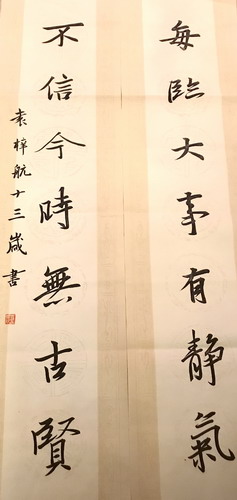 每臨大事有静氣
不信今時無古賢
袁梓航十三歲書